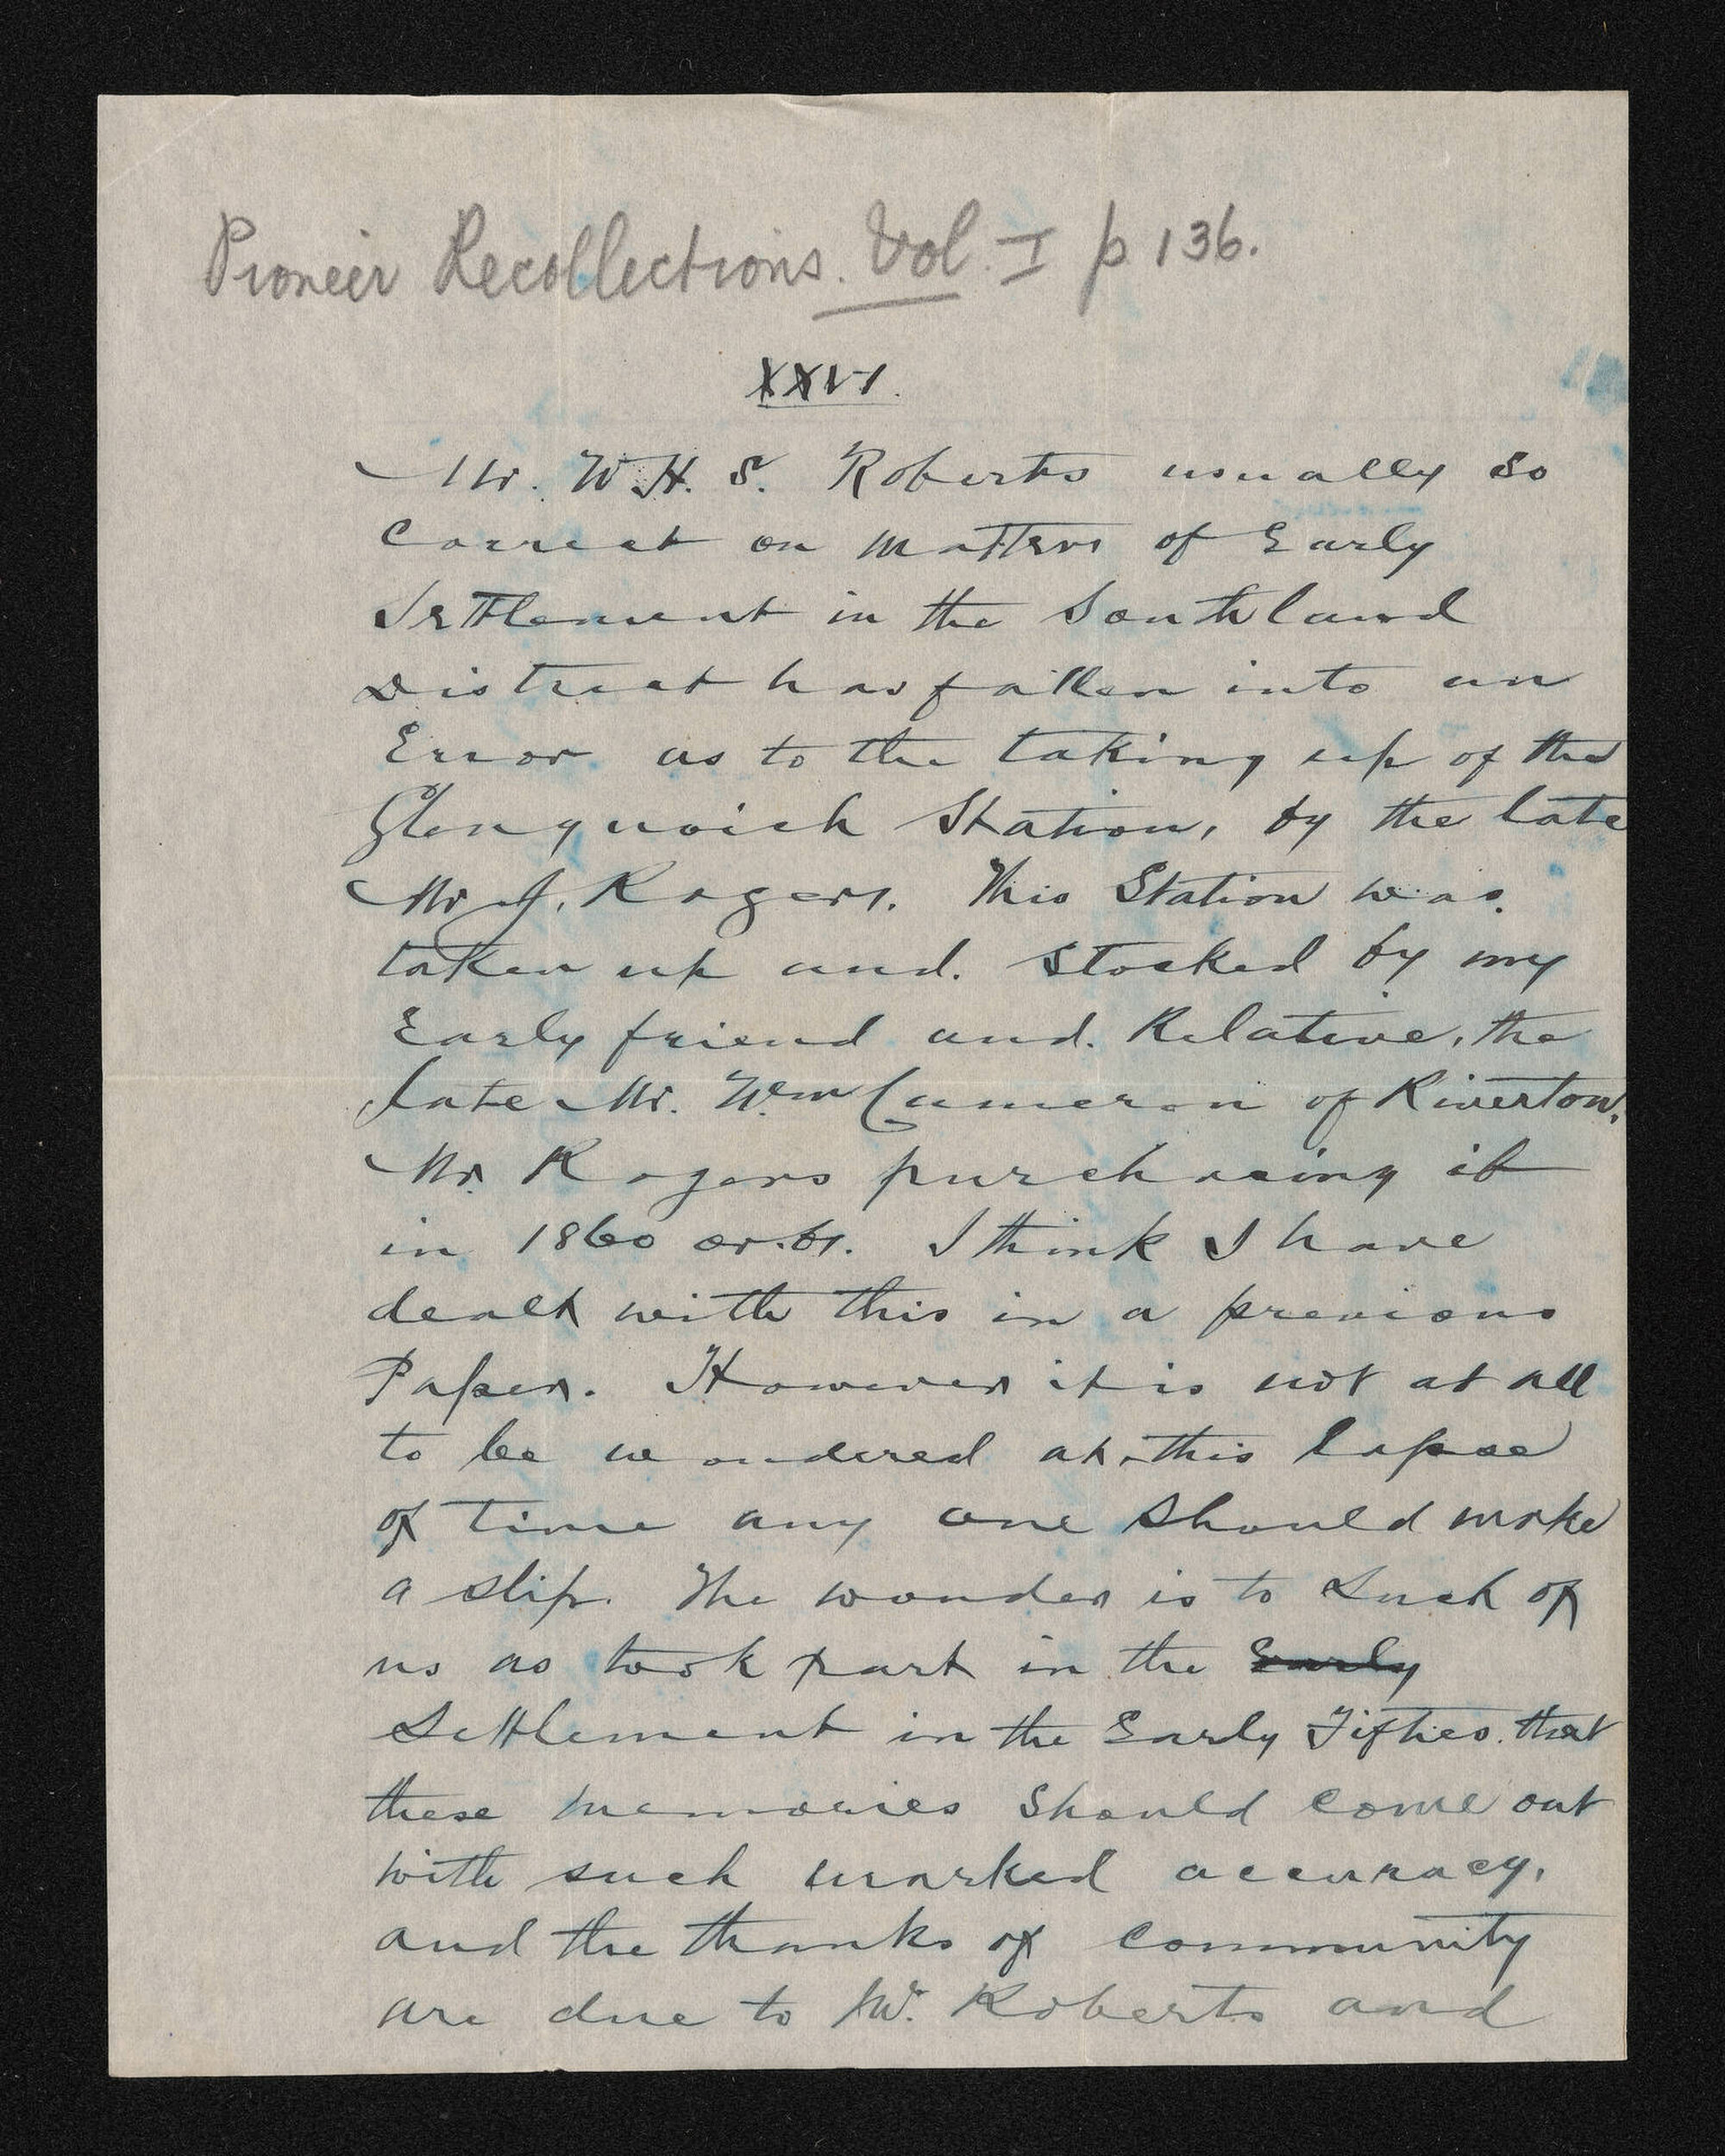 Pioneer Recollections. Vol. I p 136.
XXVI.
Mr. W. H. S. Roberts usually so
Correct on matters of Early
Settlement in the Southland
District has fallen into an
Error as to the taking up of the
Glenquoich Station, by the late
Mr J. Rogers. This Station was
taken up and. Stocked by my
Early friend and. Relative, the
late Mr. Wm Cameron of Riverton,
Mr. Rogers purchasing it
in 1860 or. 61. I think I have
dealt with this in a previous
Paper. However it is not at all
to be wondered at, this lapse
of time any one should make
a slip. The wonder is to Such of
us as took part in the Early
Settlement in the Early Fifties. that
these memories Should come out
with such marked accuracy,
and the thanks of community
are due to Mr. Roberts and